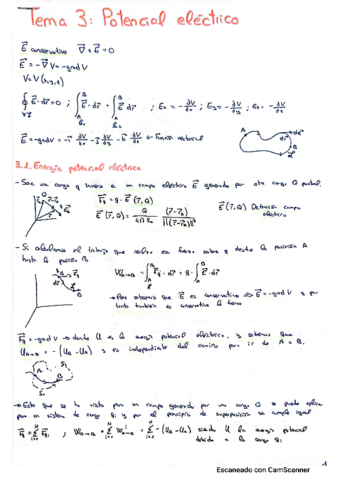 Tema 3: Potencial eléctrico
E⃗ conservativo ∇⃗ × E⃗ = 0
E⃗ = -∇⃗V = -grad V
V = V(x,y,z)
∮ E⃗·dr⃗ = 0 ; ∫ E⃗·dr⃗ = ∫ E⃗·dr⃗ ; Ex = -∂V/∂x ; Ey = -∂V/∂y ; Ez = -∂V/∂z
E⃗ = -grad V = -i⃗ ∂V/∂x - j⃗ ∂V/∂y - k⃗ ∂V/∂z ← Función vectorial
3.1. Energía potencial eléctrica
- Sea una carga q inversa a un campo eléctrico E⃗ generado por otra carga Q puntual.
F⃗q = q · E⃗ (r⃗, Q)
E⃗ (r⃗, Q) = Q/4πε₀ (r⃗-r⃗₀)/||(r⃗-r⃗₀)||³
E⃗ (r⃗, Q) Definición campo eléctrico
- Si calculamos el trabajo que realiza esa fuerza sobre q desde la posición A
hasta la posición B
W A→B = ∫ F⃗q · dr⃗ = q · ∫ E⃗ · dr⃗
→ Pero sabemos que E⃗ es conservativo ⇒ E⃗ = -grad V y por
tanto también es conservativa la fuerza
F⃗q = -grad U → donde U es la energía potencial eléctrica, y sabemos que
W A→B = -(U B - U A) y es independiente del camino para ir de A a B.
→ Esto que se ha visto para un campo generado por una carga Q se puede aplicar
para un sistema de cargas qi y por el principio de superposición se cumple igual
F⃗q = Σ F⃗i ; W A→B = Σ W i A→B = Σ -(U B - U A) siendo U la energía potencial
debida a la carga qi
Escaneado con CamScanner